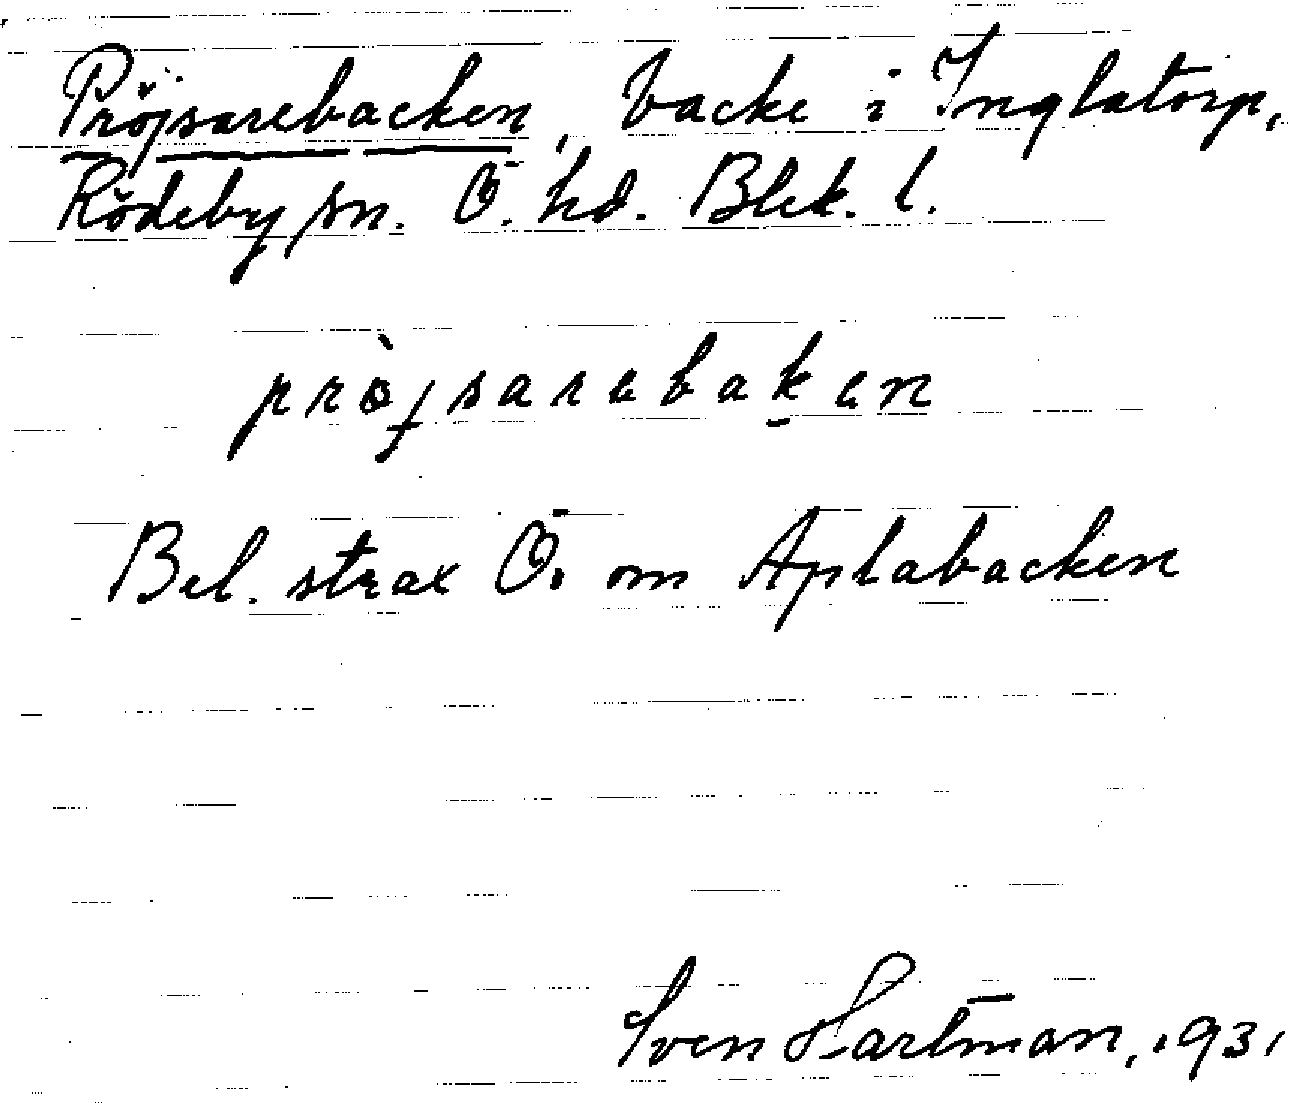 Pröjsarebacken, backe i Inglatorp,
Rödeby sn. Ö. hd. Blek. l.
prö̀jsarebaken
Bel. strax Ö. om Aplabacken
Sven Hartman, 1931